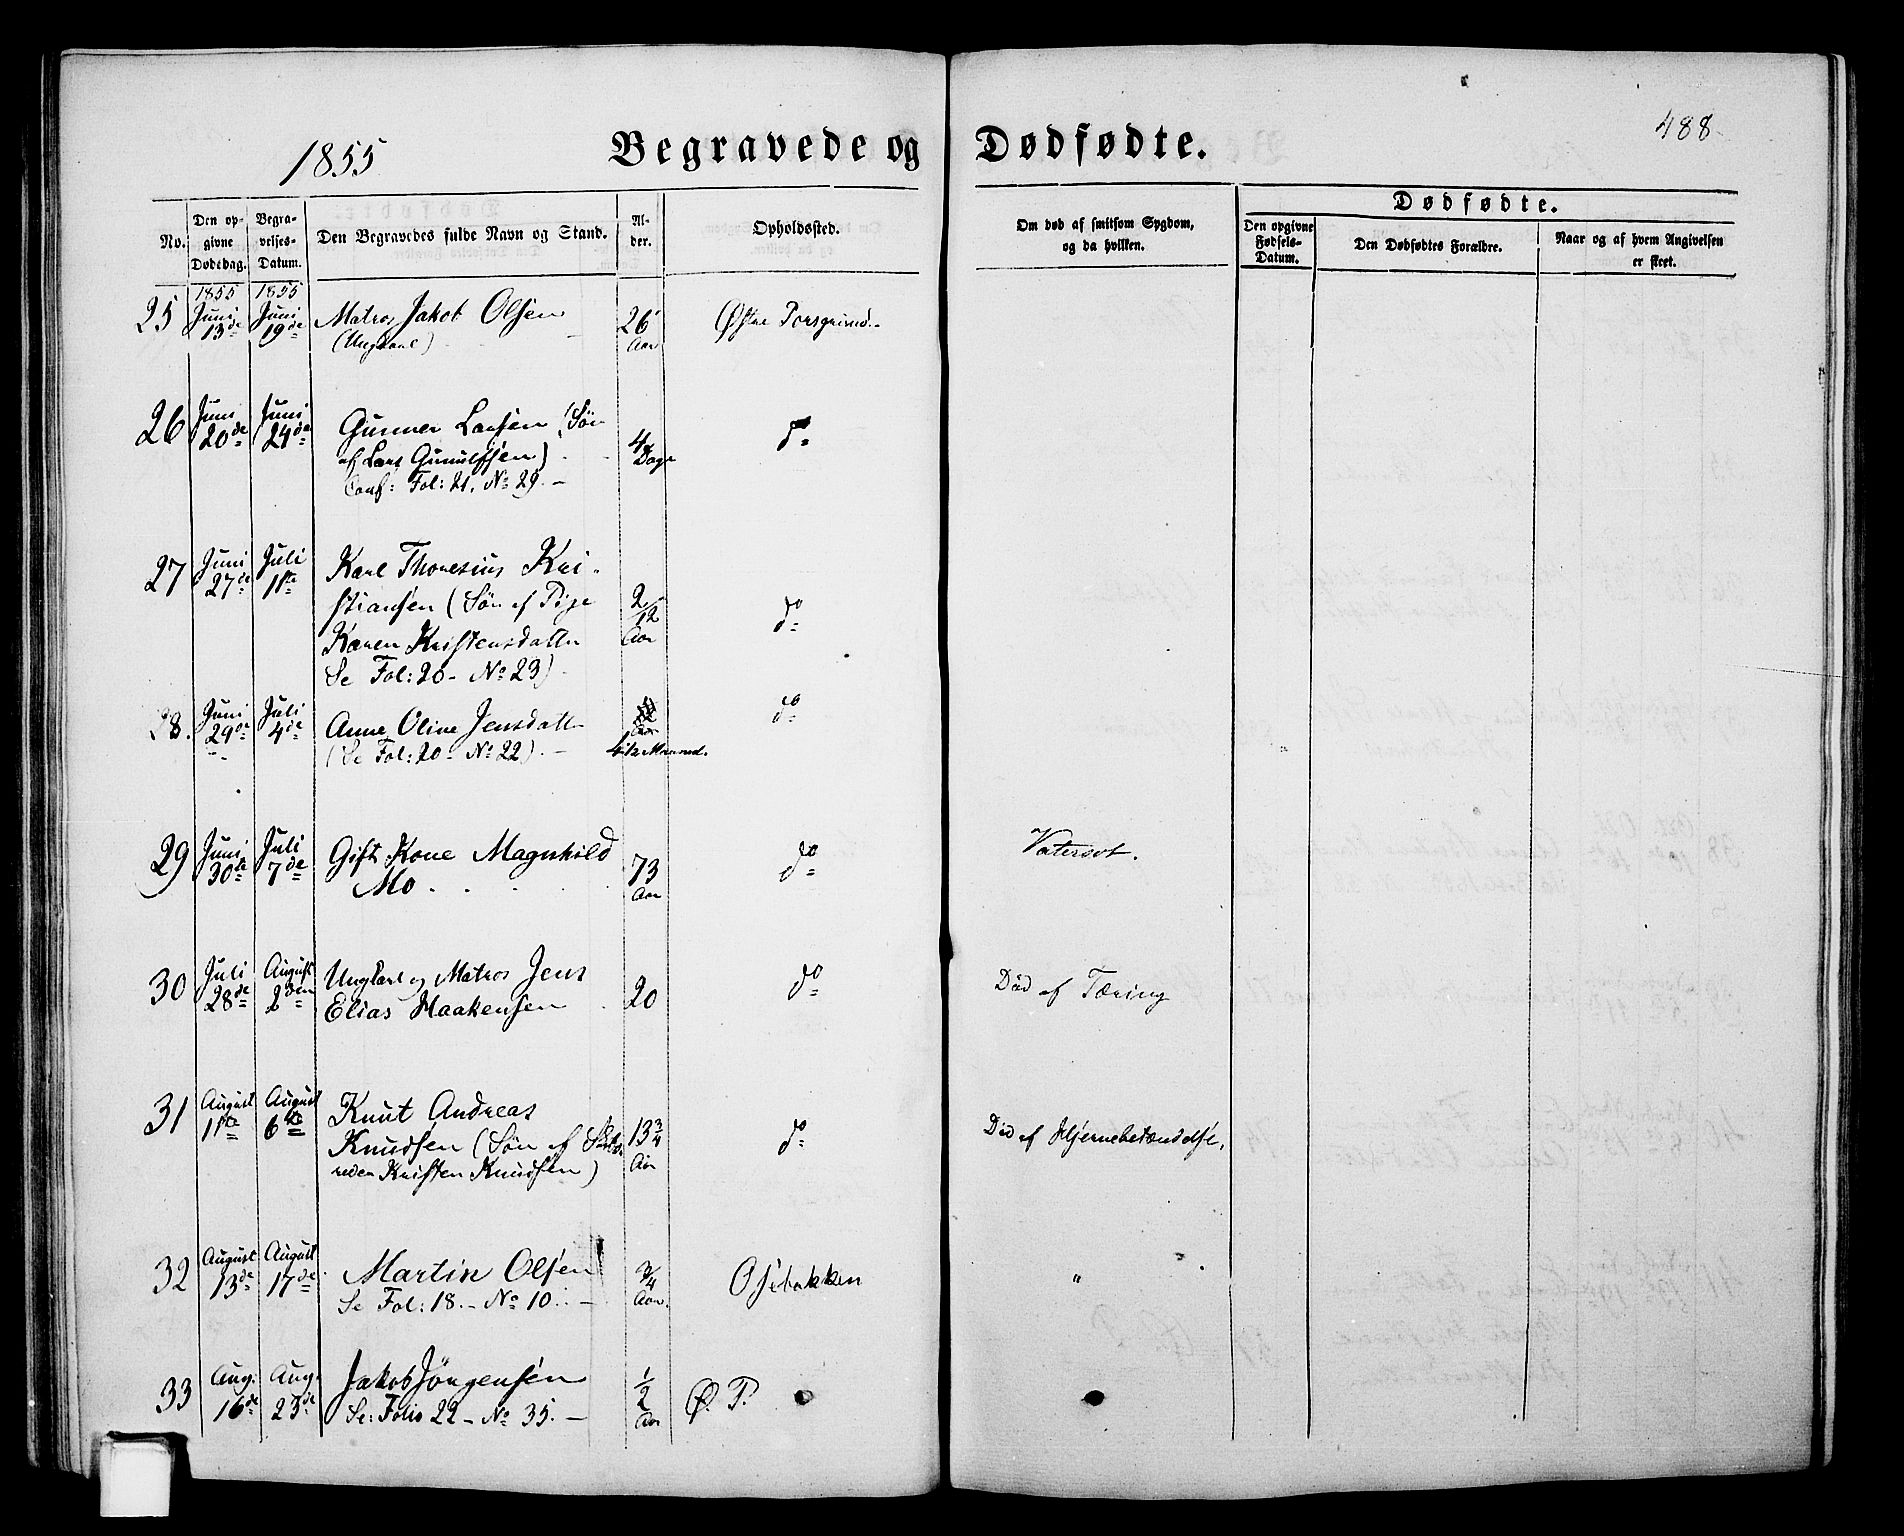 488
1855
Begravede og Dødfødte.
No.
Den opgivne Dødsdag.
Begravelses-Datum.
Den Begravedes fulde Navn og Stand.
Alder.
Opholdssted.
Om død af smitsom Sygdom, og da hvilken.
Dødfødte.
Den opgivne Fødsels-Datum.
Den Dødfødtes Forældre.
Naar og af hvem Angivelsen er skeet.
1855 1855
25 Juni 13de Juni 19de Matros Jakob Olsen 26 Aar Østre Porsgrund.
(Ungkarl)
26 Juni 20de Juni 24de Gunner Larsen (Søn 4 Dage do
af Lars Gunulfsen)
Conf: Fol: 21. No 29.
27 Juni 27de Juli 1ste Karl Thoresius Kri-
stiansen (Søn af Pige 2/12 Aar do
Karen Kristensdatter
Se Fol: 20 - No 23)
28. Juni 29de Juli 4de Anne Oline Jensdatter do
(Se Fol: 20 - No 22). Aar
29 Juni 30de Juli 7de Gift Kone Magnhild 73 Aar do Vatersot.
Mo
30 Juli 28de August 2den Ungkarl og Matros Jens 20 do Død af Tæring
Elias Haakensen
31 August 1ste August 6te Knut Andreas
Knudsen (Søn af 13 3/4 Aar do Død af Hjernebetændelse.
Kristen Knudsen)
32 August 13de August 17de Martin Olsen 3/4 Aar. Osebakken "
Se Fol: 18. - No 10.
33 Aug. 16de Aug. 23de Jakob Jörgensen 1/2 Aar Ø. P.
Se: Folio 22 - No 35.